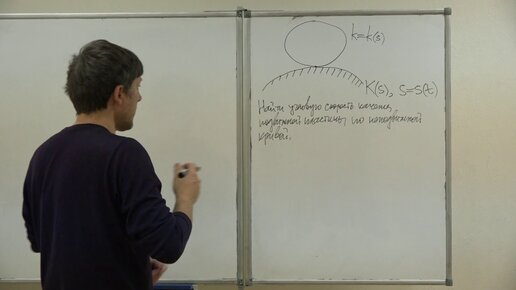 k=k(s)
K(s), s=s(t)
Найти угловую скорость качения
подвижной пластины по неподвижной
кривой.